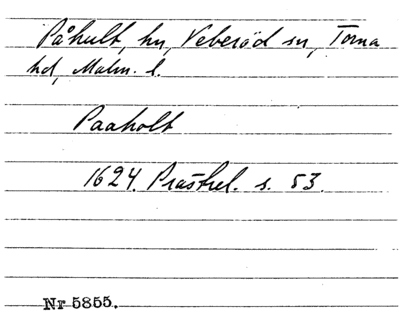 Påhult, hn, Veberöd sn, Torna
hd, Malm. l.
Paaholt
1624. Prästrel. s. 53.
Nr 5855.